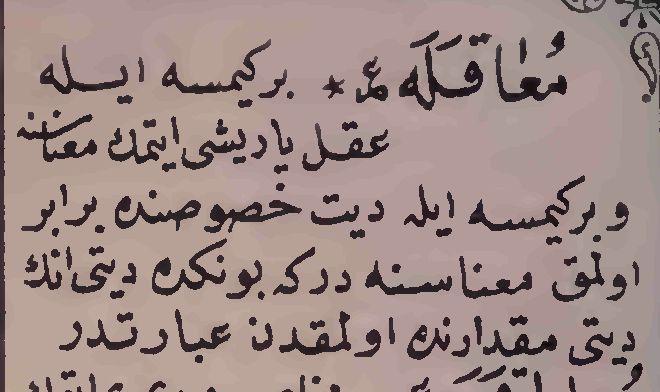 مُعَاقَلَه ع * بركيمسه ايله
عقل ياريشى ايتمك معناسنه
و بركيمسه ايله ديت خصوصنده برابر
اولمق معناسنه دركه بونكده ديتى انك
ديتى مقدارنده اولمقدن عبارتدر